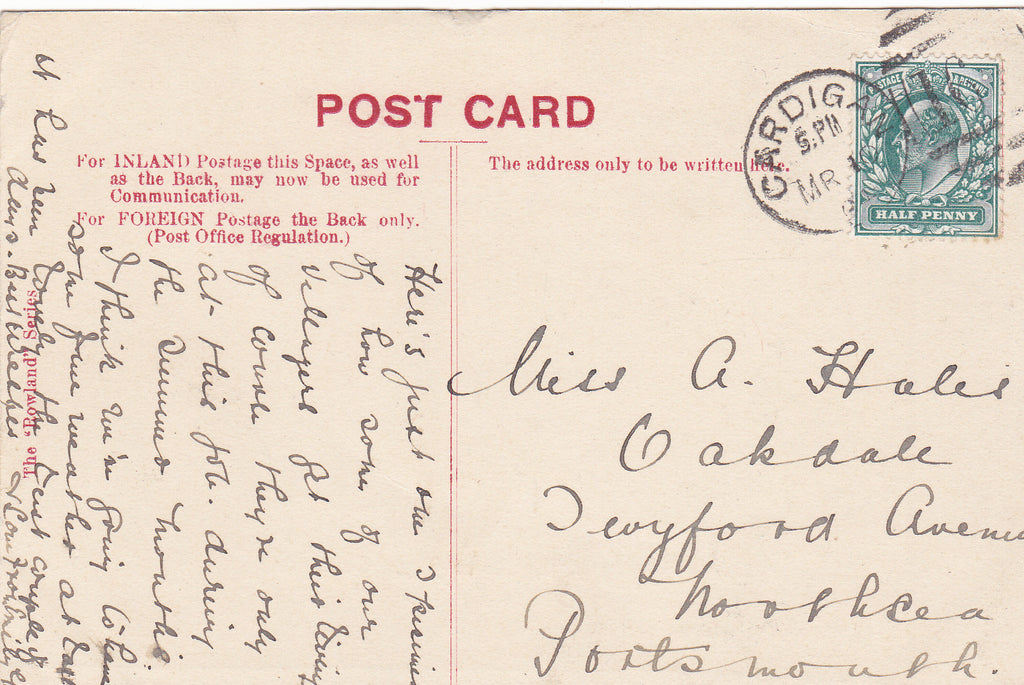 POST CARD
For INLAND Postage this Space, as well
as the Back, may now be used for
Communication.
For FOREIGN Postage the Back only.
(Post Office Regulation.)
The address only to be written here.
CARDIGAN
5.PM
MR
POSTAGE & REVENUE
HALF PENNY
Miss A. Hales
Oakdale
Twyford Avenu
Northsea
Portsmouth.
Here's just one
of how some of our
villagers get their living
of course they're only
at this job. during
the summer months
I think we're going to have
some fine weather at
It has been lovely the last couple of
days.
The "Rowland" Series